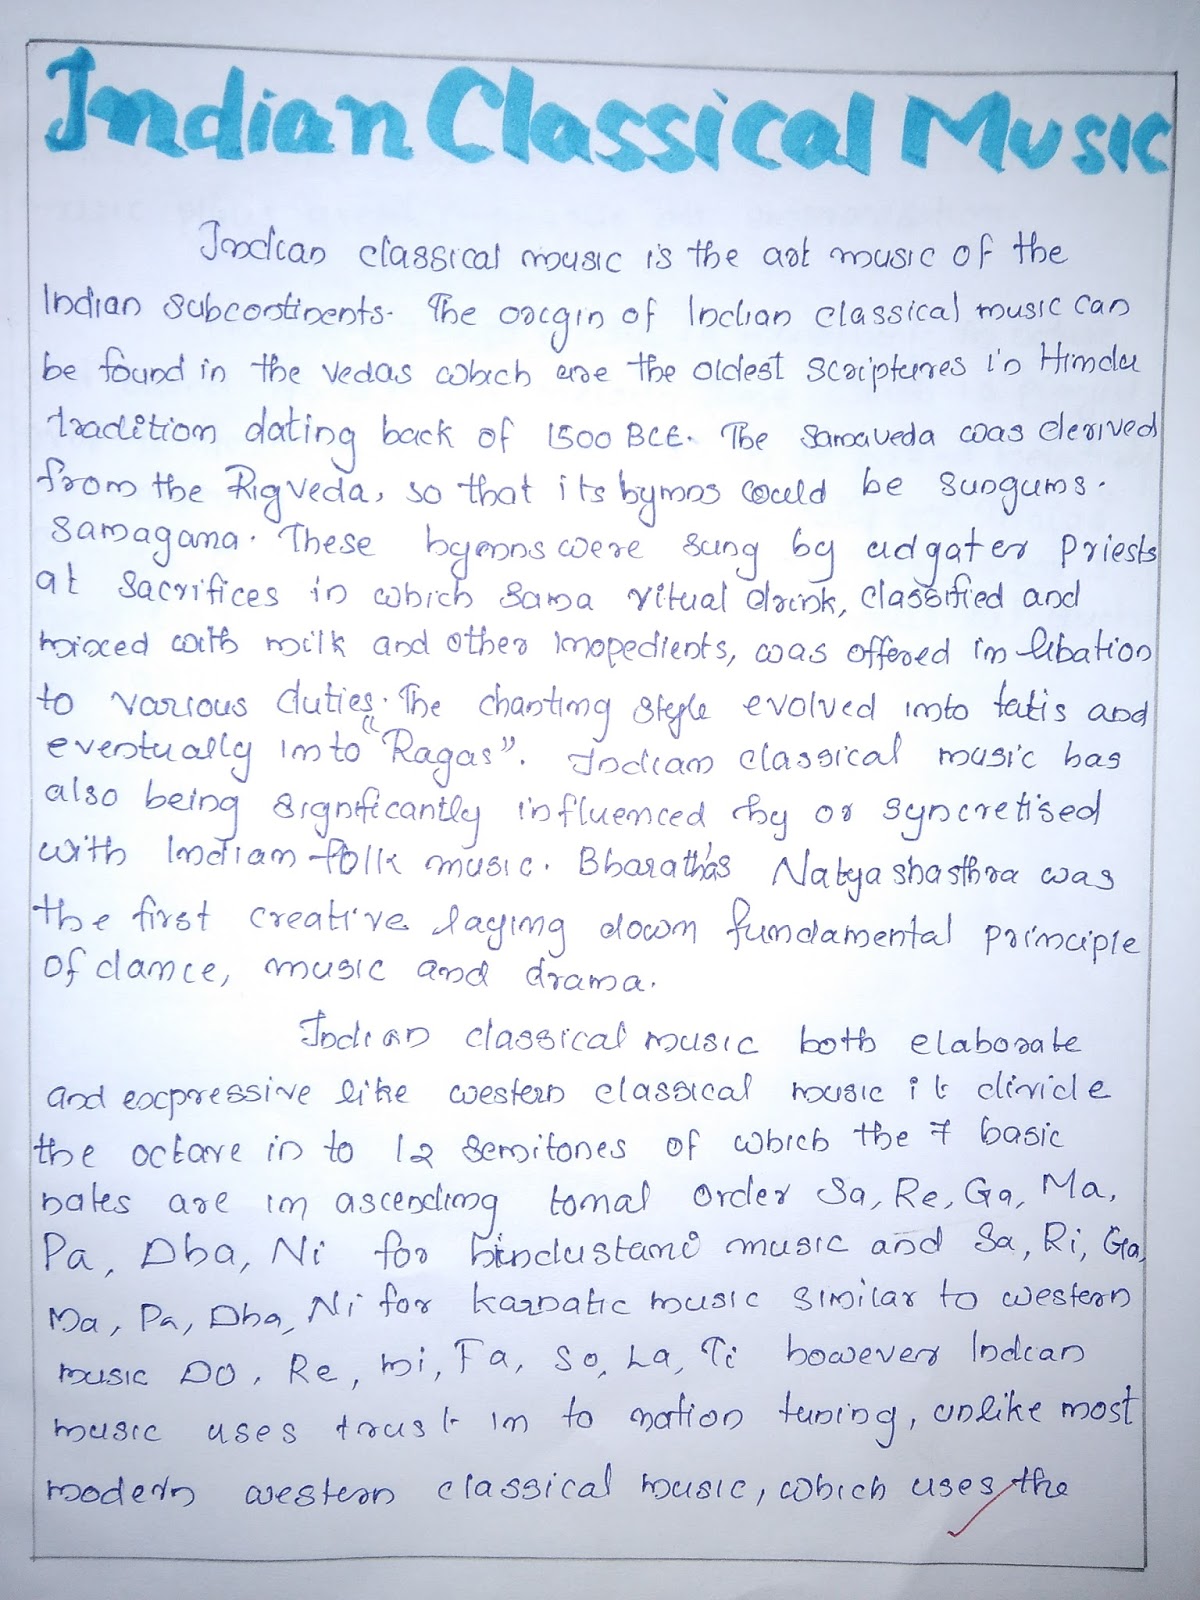 Indian Classical Music
Indian classical music is the art music of the
Indian subcontinents. The origin of Indian classical music can
be found in the vedas which are the oldest scriptures in Himdu
tradition dating back of 1500 BCE. The samaveda was derived
from the Rigveda, so that its hymns could be sungums.
samagana. These hymns were sung by udgater priests
at sacrifices in which sama ritual drink, classified and
mixed with milk and other imopedients, was offered in libation
to various duties. The chanting style evolved into tatis and
eventually into "Ragas". Indian classical music has
also being significantly influenced by or syncretised
with Indian folk music. Bharatha's Natyashasthra was
the first creative laying down fundamental principle
of dance, music and drama.
Indian classical music both elaborate
and expressive like western classical music it divide
the octave in to 12 semitones of which the 7 basic
nates are in ascending tomal order Sa, Re, Ga, Ma,
Pa, Dha, Ni for hindustani music and Sa, Ri, Ga,
Ma, Pa, Dha, Ni for karnatic music similar to western
music DO, Re, mi, Fa, So, La, Ti however Indian
music uses trust in to nation tuning, unlike most
modern western classical music, which uses the